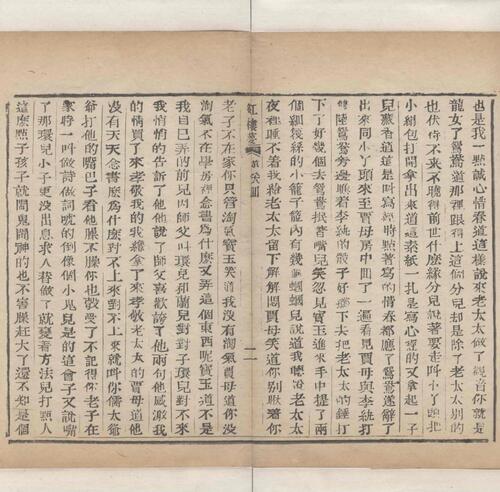 也是我一點誠心惜春道這樣說來老太太做了觀音你就是
龍女了鴛鴦道那裡跟得上這個分兒却是除了老太太別的
也伏侍不來不曉得前世什麽緣分兒說着要走叫小丫頭把
小絹包打開拿出來道這素紙一扎是寫心經的又拿起一子
兒藏香道這是叫寫經時點着寫的惜春都應了鴛鴦遂辭了
出來同小丫頭來至賈母房中回了一遍看見賈母與李紈打
雙陸鴛鴦旁邊瞧着李紈的骰子好擲下去把老太太的錘打
下了好幾個去鴛鴦抿着嘴兒笑忽見寶玉進來手中提了兩
個細篾絲的小籠子籠內有幾個蟈蟈兒說道我聽說老太太
夜裡睡不着我給老太太留下解解悶賈母笑道你別瞅着你
紅樓夢 第八八回 二
老子不在家你只管淘氣寶玉笑道我沒有淘氣賈母道你沒
淘氣不在學房裡念書爲什麽又弄這個東西呢寶玉道不是
我自己弄的前兒因師父叫環兒和蘭兒對對子環兒對不來
我悄悄的告訴了他他說了師父喜歡誇了他兩句他感激我
的情買了來孝敬我的我纔拿了來孝敬老太太的賈母道他
沒有天天念書麽爲什麽對不上來對不上來就叫你儒大爺
爺打他的嘴巴子看他臊不臊你也彀受了不記得你老子在
家時一叫做詩做詞唬的倒像個小鬼兒是的這會子又說嘴
了那環兒小子更沒出息求人替做了就變着方法兒打點人
這麽點子孩子就鬧鬼鬧神的也不害臊赶大了還不知是個